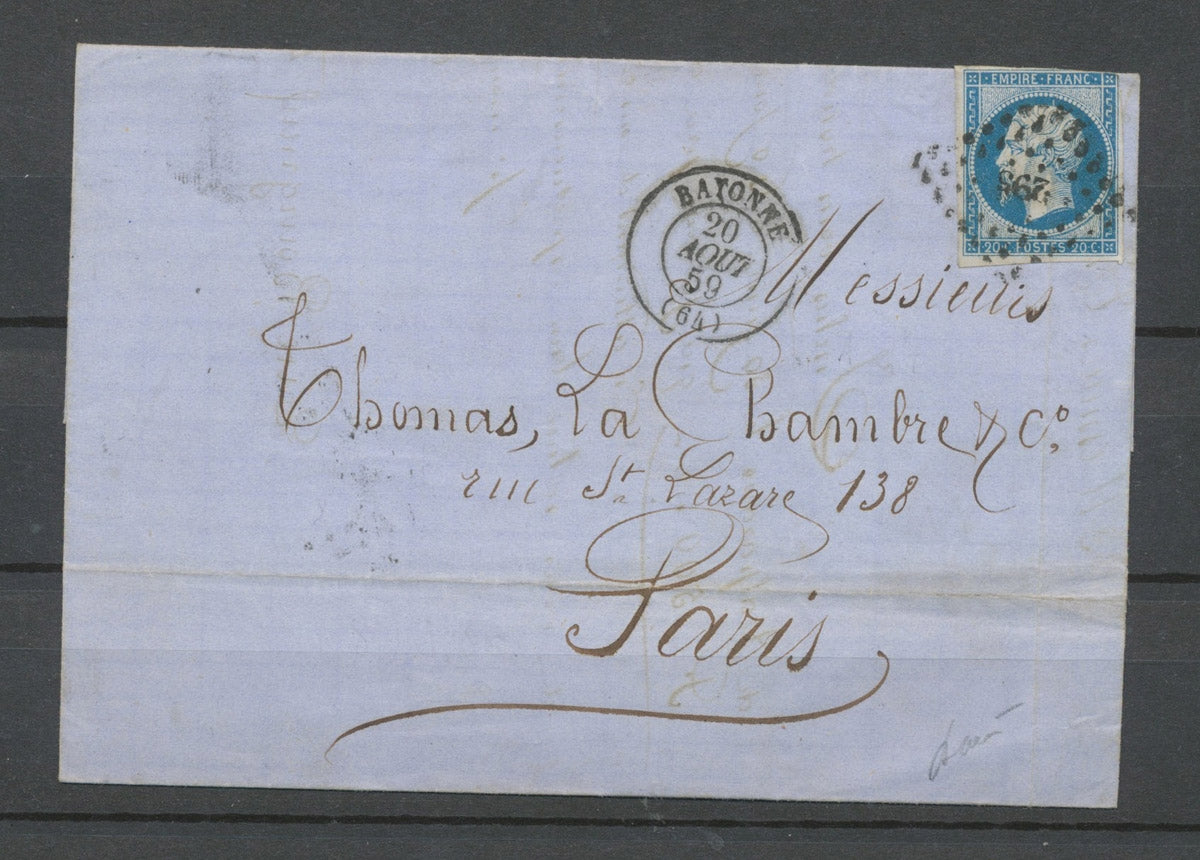 EMPIRE · FRANC ·
20 C POSTES 20 C
BAYONNE
20
AOUT
59
(64)
Messieurs
Thomas, La Chambre & Cº.
rue St. Lazare 138
Paris